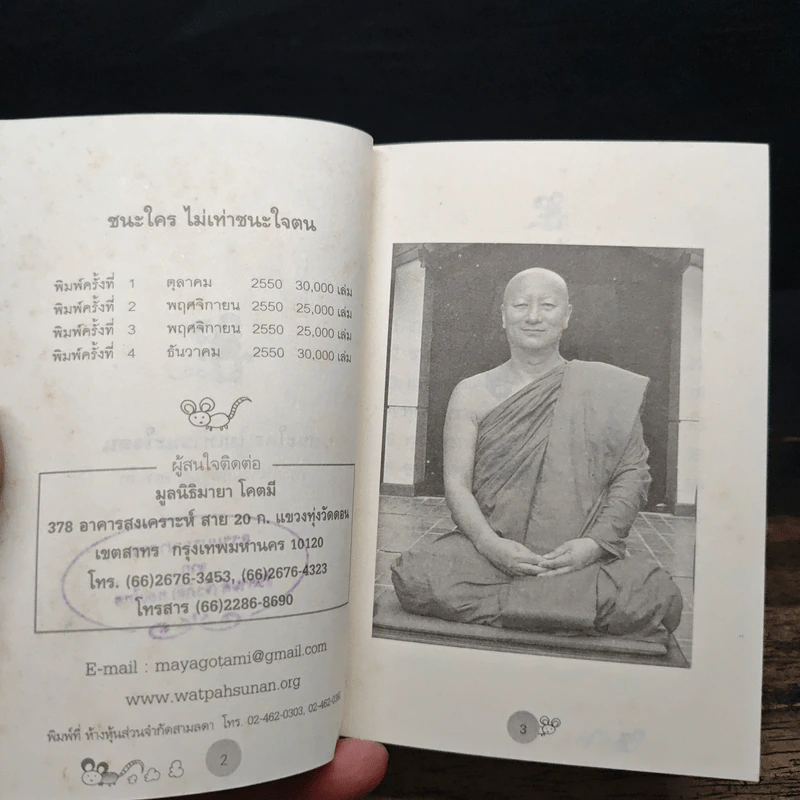 ชนะใคร ไม่เท่าชนะใจตน
พิมพ์ครั้งที่ 1 ตุลาคม 2550 30,000 เล่ม
พิมพ์ครั้งที่ 2 พฤศจิกายน 2550 25,000 เล่ม
พิมพ์ครั้งที่ 3 พฤศจิกายน 2550 25,000 เล่ม
พิมพ์ครั้งที่ 4 ธันวาคม 2550 30,000 เล่ม
ผู้สนใจติดต่อ
มูลนิธิมายา โคตมี
378 อาคารสงเคราะห์ สาย 20 ก. แขวงทุ่งวัดดอน
เขตสาทร กรุงเทพมหานคร 10120
โทร. (66)2676-3453, (66)2676-4323
โทรสาร (66)2286-8690
E-mail : mayagotami@gmail.com
www.watpahsunan.org
พิมพ์ที่ ห้างหุ้นส่วนจำกัดสามลดา โทร. 02-462-0303,
2
3